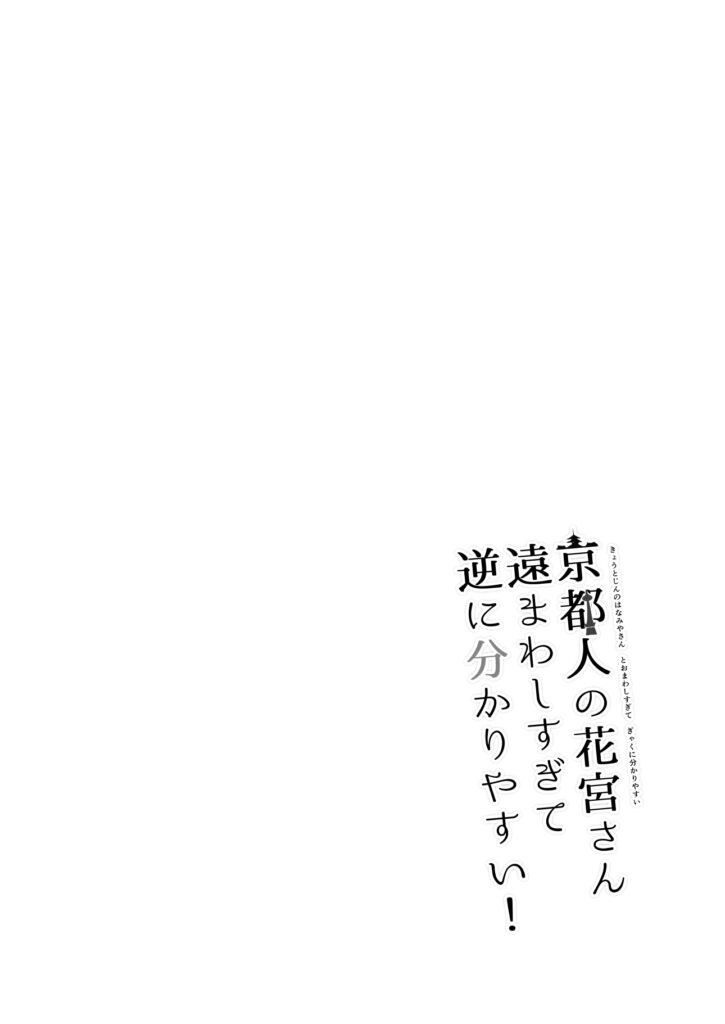 京都人の花宮さん
遠まわしすぎて
逆に分かりやすい！
きょうとじんのはなみやさん　とおまわしすぎて　ぎゃくに分かりやすい